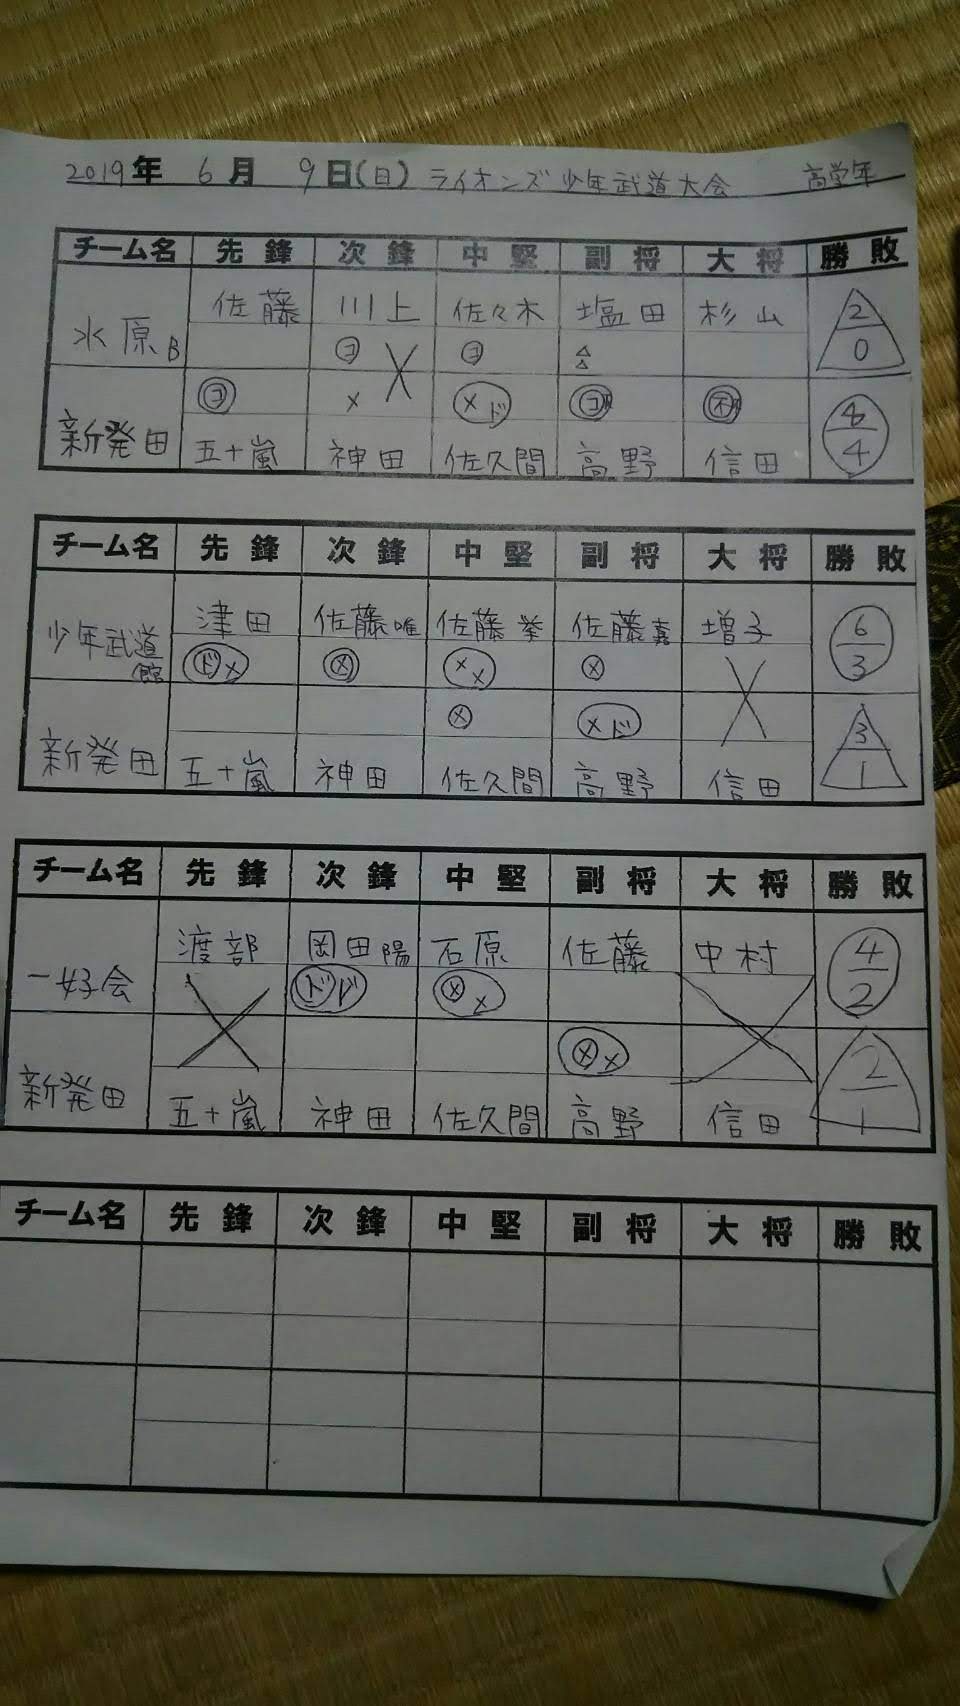 2019年 6月 9日(日) ライオンズ少年武道大会 高学年
チーム名 先鋒 次鋒 中堅 副将 大将 勝敗
水原B 佐藤 川上 佐々木 塩田 杉山 2/0
コ コ △△
コ メ メド コ
新発田 五十嵐 神田 佐久間 高野 信田 8/4
チーム名 先鋒 次鋒 中堅 副将 大将 勝敗
少年武道館 津田 佐藤唯 佐藤 佐藤嘉 増子 6/3
ドメ メ メメ メ
メ メド
新発田 五十嵐 神田 佐久間 高野 信田 3/1
チーム名 先鋒 次鋒 中堅 副将 大将 勝敗
一好会 渡部 岡田陽 石原 佐藤 中村 4/2
ドド メメ
メメ
新発田 五十嵐 神田 佐久間 高野 信田 2/1
チーム名 先鋒 次鋒 中堅 副将 大将 勝敗